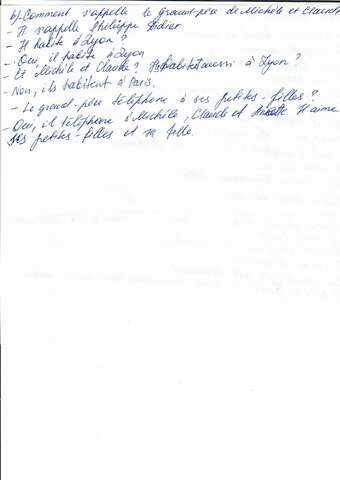 b) - Comment s'appelle le grand-père de Michèle et Claude
- Il s'appelle Philippe Didier
- Il habite à Lyon ?
- Oui, il habite à Lyon
- Et Michèle et Claude ? Ils habitent aussi à Lyon ?
- Non, ils habitent à Paris.
- Le grand-père téléphone à ses petites-filles ?
- Oui, il téléphone à Michèle, Claude et Annette. Il aime
ses petites-filles et sa fille.